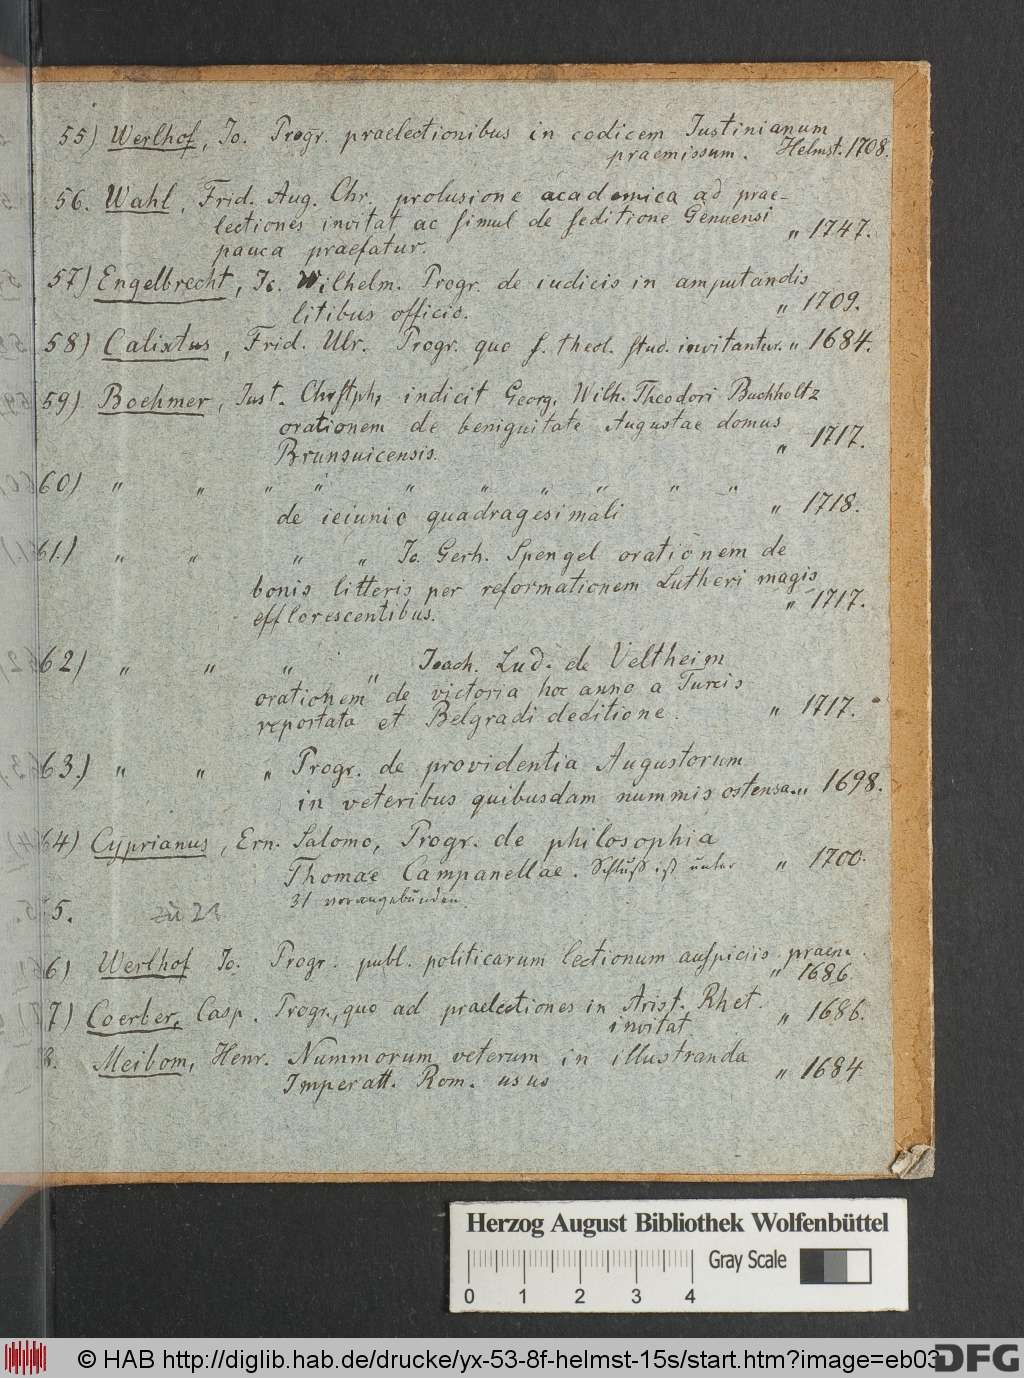 55) Werlhof, Io. Progr. praelectionibus in codicem Iustinianum
praemissum. Helmst. 1708.
56. Wahl, Frid. Aug. Chr. prolusione academica ad prae-
lectiones invitat ac simul de seditione Genuensi
pauca praefatur. " 1747.
57) Engelbrecht, Io. Wilhelm. Progr. de iudicis in amputandis
litibus officio. " 1709.
58) Calixtus, Frid. Ulr. Progr. quo s. theol. stud. invitantur. " 1684.
59) Boehmer, Iust. Chrstph, indicit Georg. Wilh. Theodori Buchholtz
orationem de benignitate Augustae domus
Brunsuicensis. " 1717.
60) " " " " " " " " " "
de ieiunio quadragesimali " 1718.
61.) " " " " Io. Gerh. Spengel orationem de
bonis litteris per reformationem Lutheri magis
efflorescentibus. " 1717.
62) " " " " Ioach. Lud. de Veltheim
orationem de victoria hoc anno a Turcis
reportata et Belgradi deditione. " 1717.
63.) " " " Progr. de providentia Augustorum
in veteribus quibusdam nummis ostensa. " 1698.
64) Cyprianus, Ern. Salomo, Progr. de philosophia
Thomae Campanellae. Schluß ist unter " 1700.
31 vorangebunden.
5. zu 23
6) Werlhof Io. Progr. publ. politicarum lectionum auspiciis praem.
" 1686.
7) Coerber, Casp. Progr., quo ad praelectiones in Arist. Rhet.
invitat " 1686.
8. Meibom, Henr. Nummorum veterum in illustranda
Imperatt. Rom. usus " 1684
Herzog August Bibliothek Wolfenbüttel
Gray Scale
0 1 2 3 4
© HAB http://diglib.hab.de/drucke/yx-53-8f-helmst-15s/start.htm?image=eb03
DFG